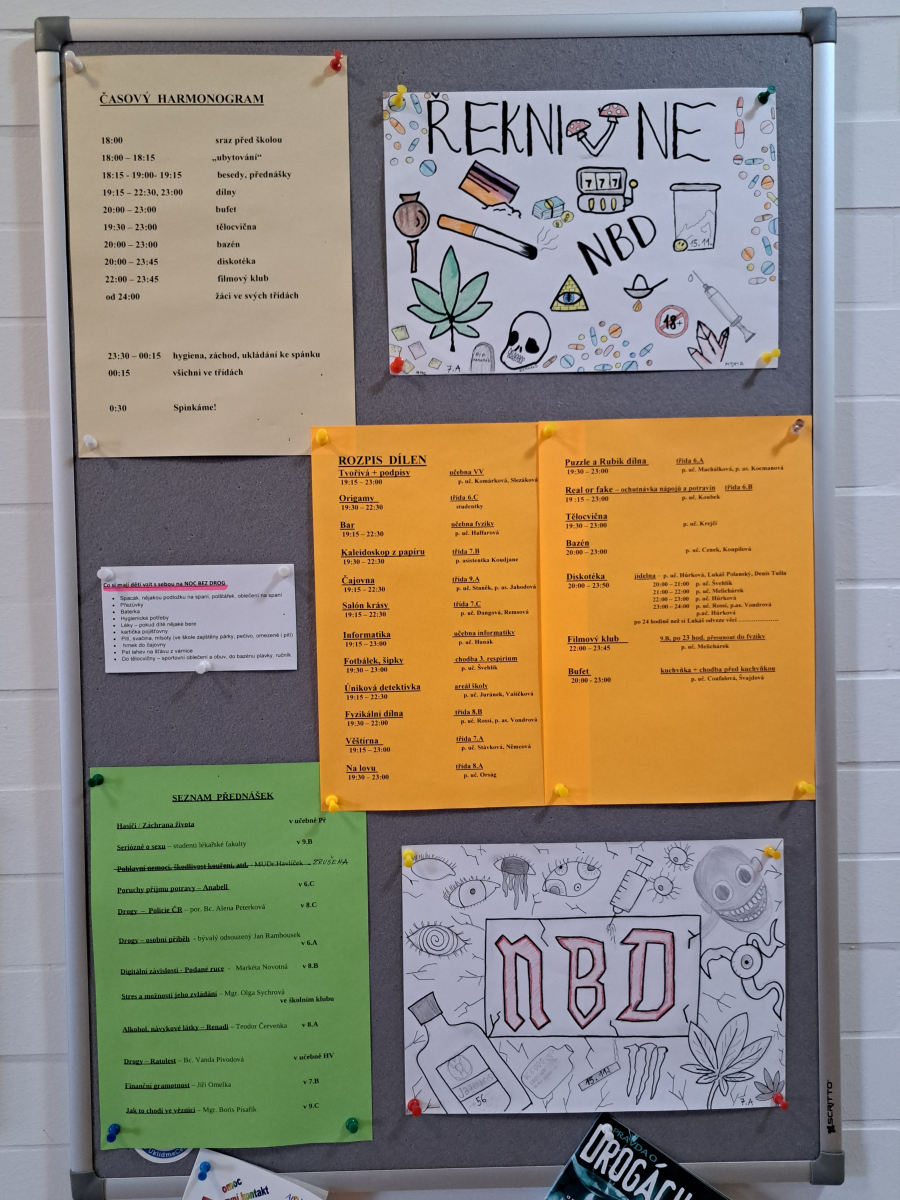 ČASOVÝ HARMONOGRAM
18:00 sraz před školou
18:00 – 18:15 „ubytování“
18:15 - 19:00- 19:15 besedy, přednášky
19:15 – 22:30, 23:00 dílny
20:00 – 23:00 bufet
19:30 – 23:00 tělocvična
20:00 – 23:00 bazén
20:00 – 23:45 diskotéka
22:00 – 23:45 filmový klub
od 24:00 žáci ve svých třídách
23:30 – 00:15 hygiena, záchod, ukládání ke spánku
00:15 všichni ve třídách
0:30 Spinkáme!
ŘEKNI NE
777
NBD
15.11.
18+
R.I.P
7.A
ROZPIS DÍLEN
Tvořivá + podpisy učebna VV
19:15 – 23:00 p. uč. Komárková, Slezáková
Origamy třída 6.C
19:30 – 22:30 studentky
Bar učebna fyziky
19:15 – 22:30 p. uč. Halfarová
Kaleidoskop z papíru třída 7.B
19:30 – 22:30 p. asistentka Koudjane
Čajovna třída 9.A
19:15 – 23:00 p. uč. Staněk, p. as. Jahodová
Salón krásy třída 7.C
19:30 – 23:00 p. uč. Dangová, Remsová
Informatika učebna informatiky
19:15 – 23:00 p. uč. Hanák
Fotbálek, šipky chodba 3. respirium
19:30 – 23:00 p. uč. Švehlík
Úniková detektivka areál školy
19:15 – 22:30 p. uč. Juránek, Vašíčková
Fyzikální dílna třída 8.B
19:30 – 22:00 p. uč. Rossi, p. as. Vondrová
Věštírna třída 7.A
19:15 – 23:00 p. uč. Stávková, Němcová
Na lovu třída 8.A
19:30 – 23:00 p. uč. Orság
Puzzle a Rubik dílna třída 6.A
19:30 – 23:00 p. uč. Machálková, p. as. Kocmanová
Real or fake – ochutnávka nápojů a potravin třída 6.B
19:15 – 23:00 p. uč. Koubek
Tělocvična
19:30 – 23:00 p. uč. Krejčí
Bazén
20:00 – 23:00 p. uč. Cenek, Konpilová
Diskotéka jídelna – p. uč. Hůrková, Lukáš Polanský, Denis Tulla
20:00 – 23:50 20:00 – 21:00 p. uč. Švehlík
21:00 – 22:00 p. uč. Melichárek
22:00 – 23:00 p. uč. Hůrková
23:00 – 24:00 p. uč. Rossi, p.as. Vondrová
p.uč. Hůrková
po 24 hodině nod si Lukáš odveze věci
Filmový klub 9.B, po 23 hod. přesunout do fyziky
22:00 – 23:45 p. uč. Melichárek
Bufet kuchyňka + chodba před kuchyňkou
20:00 - 23:00 p. uč. Coufalová, Švajdová
Co si mají děti vzít s sebou na NOC BEZ DROG
Spacák, nějakou podložku na spaní, polštářek, oblečení na spaní
Přezůvky
Baterka
Hygienické potřeby
Léky – pokud dítě nějaké bere
kartička pojišťovny
Pití, svačina, mlsoty (ve škole zajištěny párky, pečivo, omezeně i pití)
hrnek do čajovny
Pet lahev na šťávu z várnice
Do tělocvičny – sportovní oblečení a obuv, do bazénu plavky, ručník
SEZNAM PŘEDNÁŠEK
Hasiči / Záchrana života v učebně Př
Seriózně o sexu – studenti lékařské fakulty v 9.B
Pohlavní nemoci, škodlivost kouření, atd. – MUDr. Havlíček – ZRUŠENA
Poruchy příjmu potravy – Anabell v 6.C
Drogy – Policie ČR – por. Bc. Alena Peterková v 8.C
Drogy – osobní příběh – bývalý odsouzený Jan Rambousek
v 6.A
Digitální závislosti - Podané ruce – Markéta Novotná v 8.B
Stres a možnosti jeho zvládání – Mgr. Olga Sychrová
ve školním klubu
Alkohol, návykové látky – Renadi – Teodor Červenka v 8.A
Drogy – Ratolest – Bc. Vanda Pivodová v učebně HV
Finanční gramotnost – Jiří Omelka v 7.B
Jak to chodí ve věznici – Mgr. Boris Pisařík v 9.C
NBD
56
15.11.
7.A
SCRITTO
UklidmeČ
omoc
kontakt
PRAVDA O
DROGÁCH